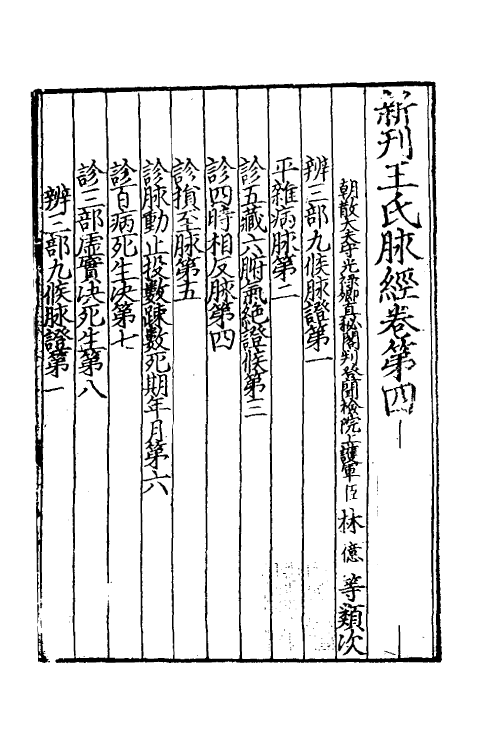 新刊王氏脉經卷第四
朝散大夫守光祿卿直祕閣判登聞檢院上護軍臣林億等類次
辨三部九候脉證第一
平雜病脉第二
診五藏六腑氣絶證候第三
診四時相反脉第四
診損至脉第五
診脉動止投數踈數死期年月第六
診百病死生决第七
診三部虛實决死生第八
辨三部九候脉證第一